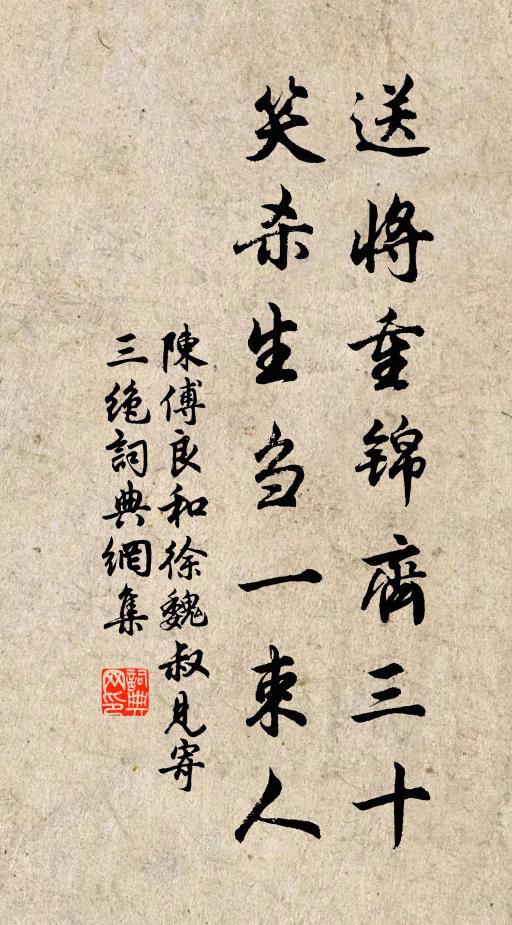 送将重锦齊三十
笑杀生刍一束人
陳傅良和徐魏叔見寄
三绝詞典網集
詞典网印